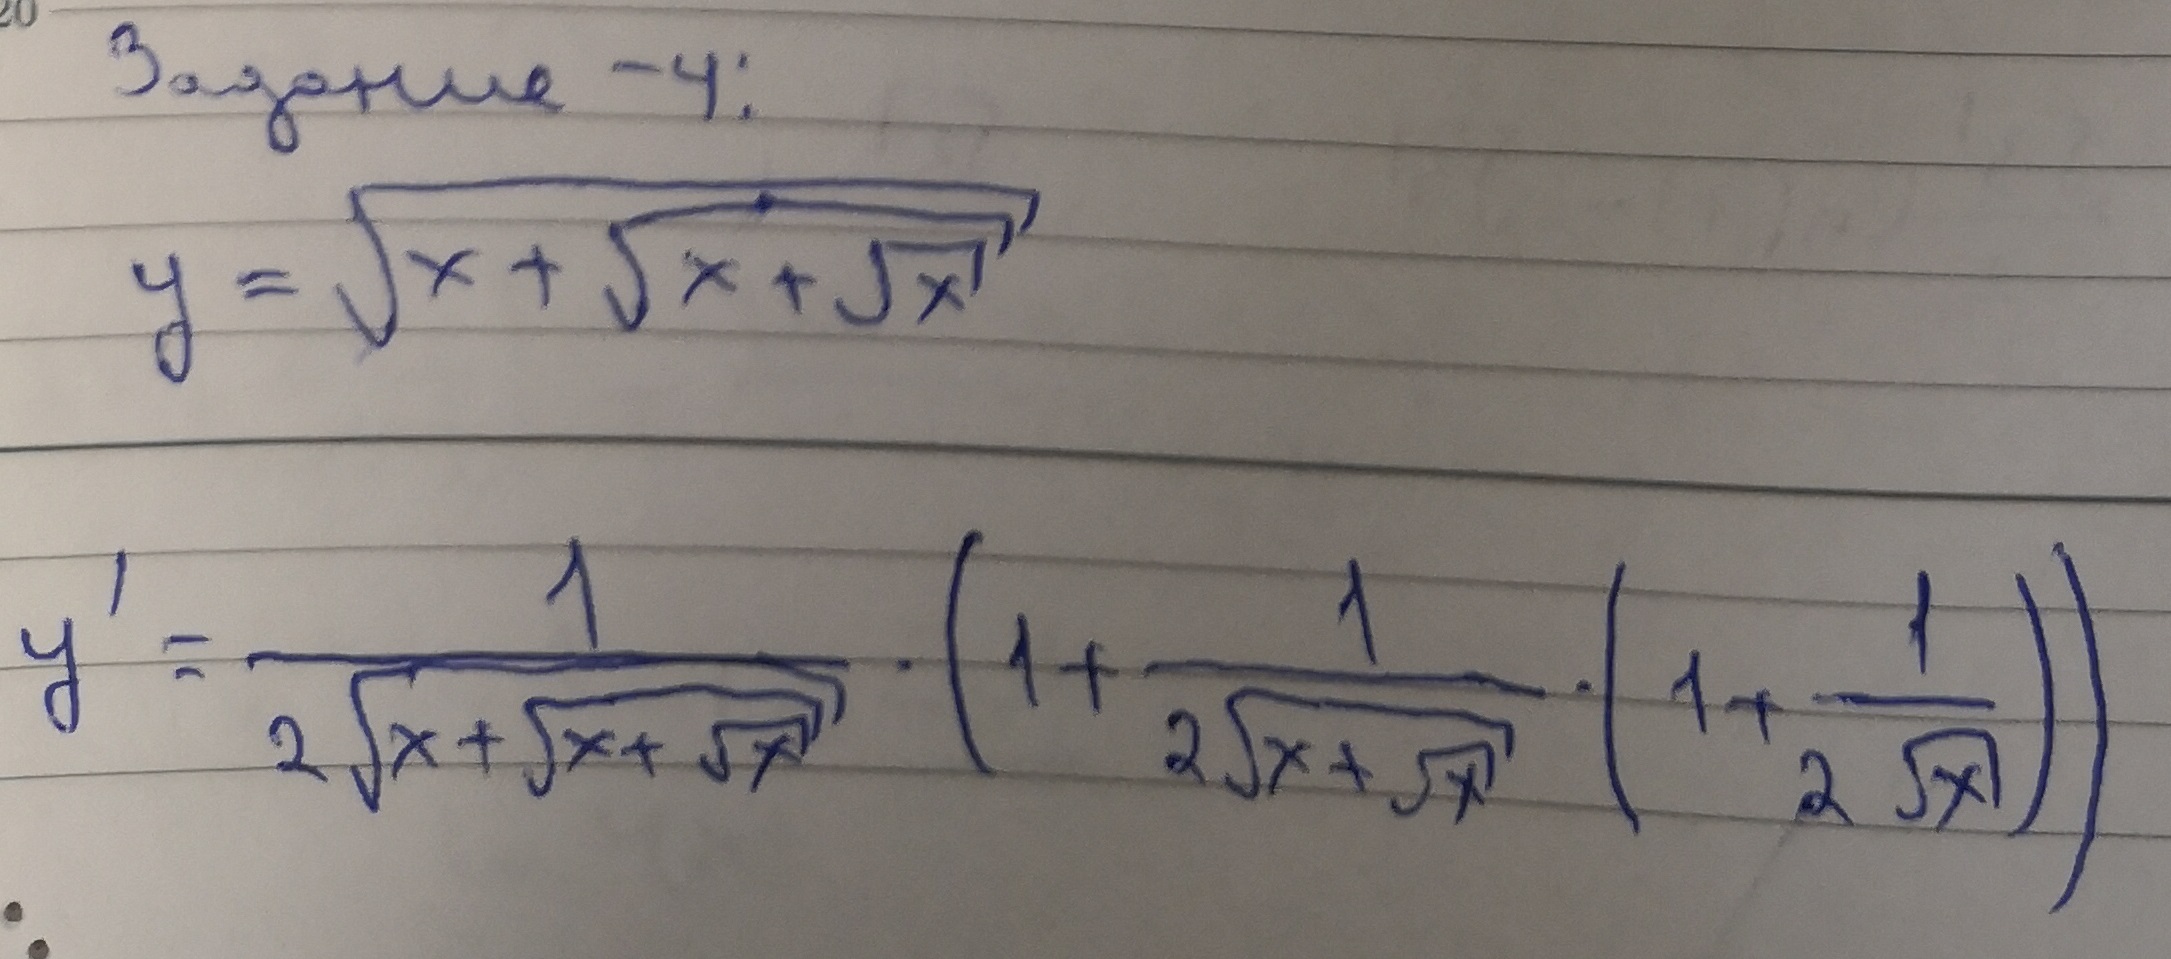 20
Задание -4:
y = √(x + √(x + √x))
y' = 1/(2√(x + √(x + √x))) · (1 + 1/(2√(x + √x)) · (1 + 1/(2√x)))